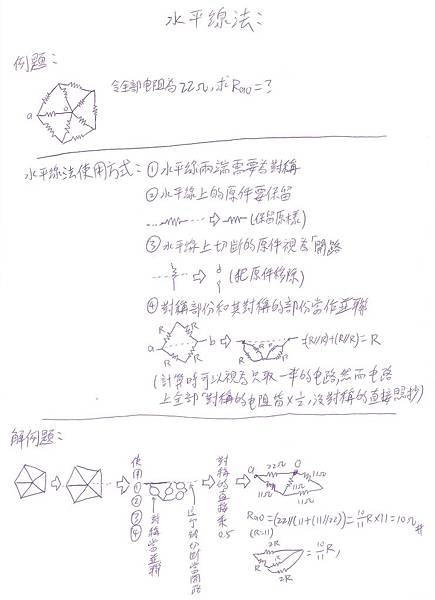 水平線法:
例題:
令全部电阻为22Ω,求Rao=?
a
o
水平線法使用方式: ①水平線兩端需要為對稱
②水平線上的原件要保留
(保留原樣)
③水平線上切斷的原件視為「開路
(把原件移除)
④對稱部份和其對稱的部份當作並聯
R R
a b
R R
(R//R)+(R//R)=R
(計算時可以視為只取一半的电路,然而电路
上全部「對稱的電阻皆×½,沒對稱的直接照抄)
解例題:
使用①②③④
對稱當並聯
這个被切斷當開路
對稱的直接乘0.5
a 22Ω o
11Ω 11Ω 11Ω 11Ω
Rao=(22//(11+(11//22))=10/11 R×11=10Ω #
(R=11)
2R
R
2R
=10/11 R,